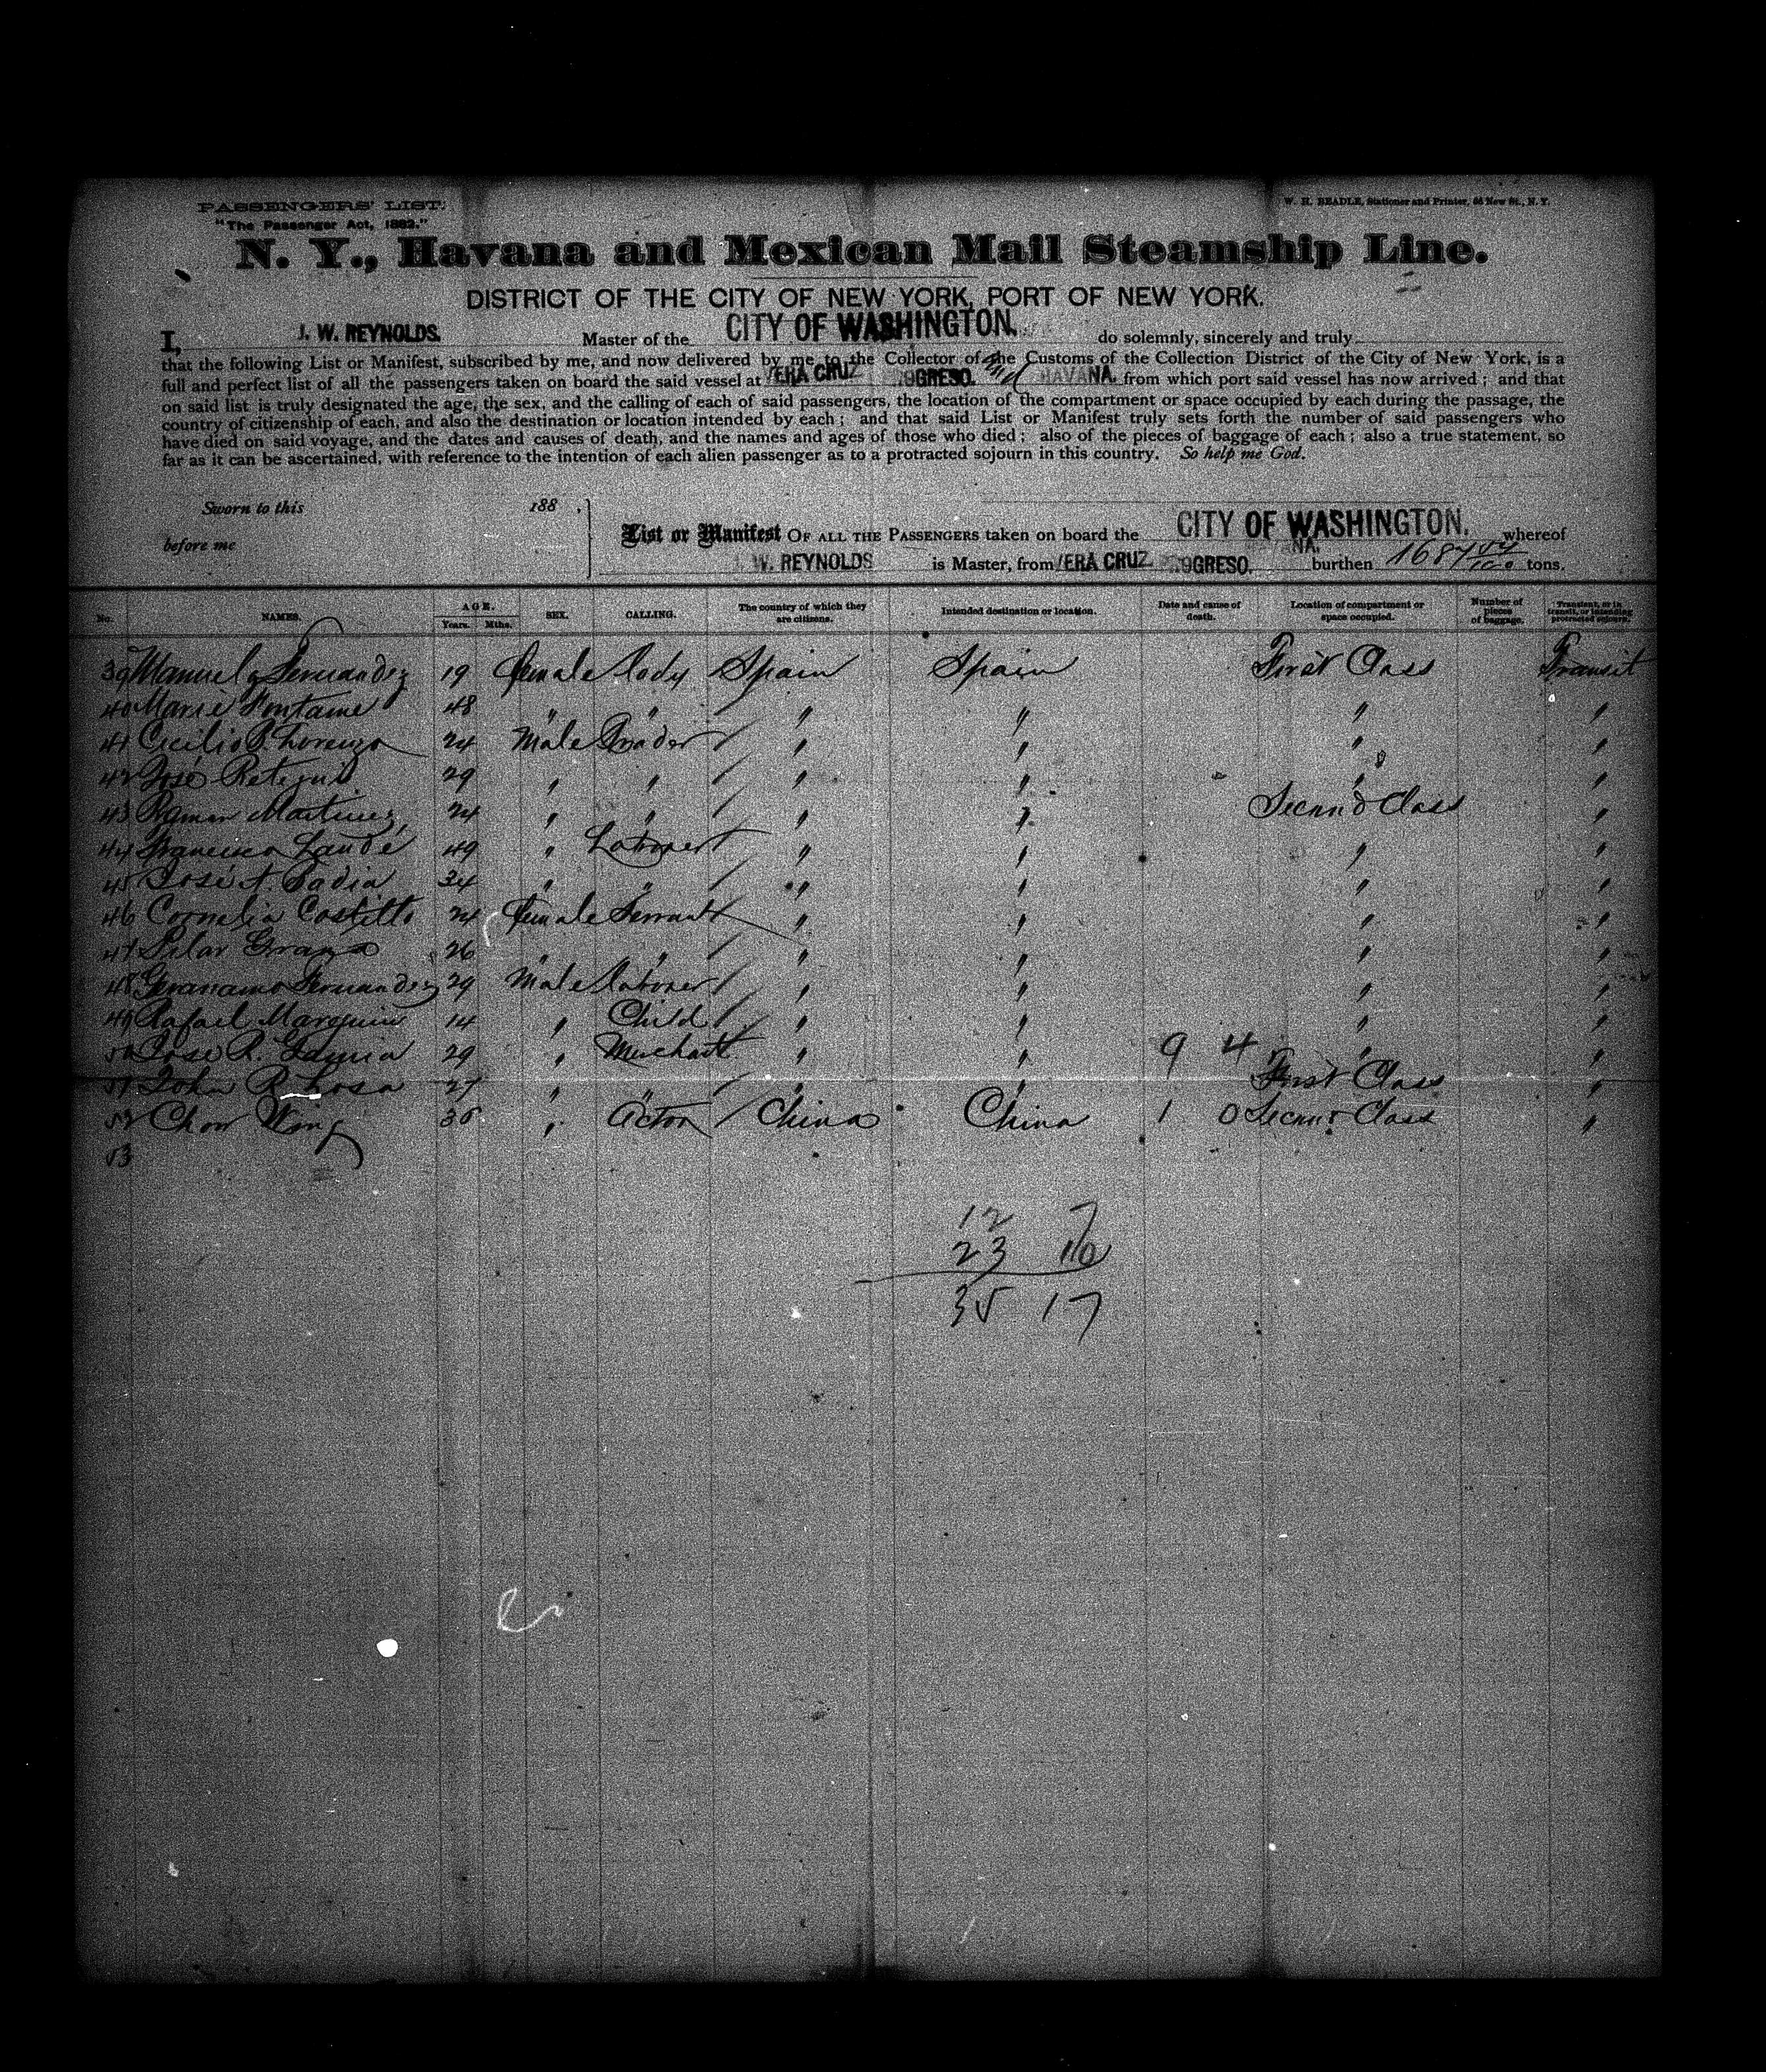 PASSENGERS' LIST.
"The Passenger Act, 1882."
W. H. BEADLE, Stationer and Printer, 56 New St., N. Y.
N. Y., Havana and Mexican Mail Steamship Line.
DISTRICT OF THE CITY OF NEW YORK, PORT OF NEW YORK.
I, J. W. REYNOLDS. Master of the CITY OF WASHINGTON. do solemnly, sincerely and truly
that the following List or Manifest, subscribed by me, and now delivered by me to the Collector of the Customs of the Collection District of the City of New York, is a
full and perfect list of all the passengers taken on board the said vessel at VERA CRUZ PROGRESO. and HAVANA. from which port said vessel has now arrived; and that
on said list is truly designated the age, the sex, and the calling of each of said passengers, the location of the compartment or space occupied by each during the passage, the
country of citizenship of each, and also the destination or location intended by each; and that said List or Manifest truly sets forth the number of said passengers who
have died on said voyage, and the dates and causes of death, and the names and ages of those who died; also of the pieces of baggage of each; also a true statement, so
far as it can be ascertained, with reference to the intention of each alien passenger as to a protracted sojourn in this country. So help me God.
Sworn to this 188 .
before me
List or Manifest OF ALL THE PASSENGERS taken on board the CITY OF WASHINGTON. whereof
W. REYNOLDS is Master, from VERA CRUZ PROGRESO. NA. burthen 1684 tons.
No. NAMES. AGE. Years. Mths. SEX. CALLING. The country of which they are citizens. Intended destination or location. Date and cause of death. Location of compartment or space occupied. Number of pieces of baggage. Transient, or in transit, or intending protracted sojourn.
39 Manuela Fernandez 19 female Lady Spain Spain First Class Transit
40 Marie Fontaine 48 " " " " " "
41 Cecilio B. Lorenzo 24 Male Trader " " " "
42 José Retegui 29 " " " " " "
43 Ramon Martinez 24 " " " " Second Class "
44 Francisco Lande 49 " Laborer " " " "
45 José A. Badia 34 " " " " " "
46 Cornelia Costillo 24 female Servant " " " "
47 Pilar 26 " " " " " "
48 Fernandez 29 Male laborer " " " "
49 Rafael 14 " Child " " " "
50 José R. 29 " Merchant " " 9 4 " "
51 John R. Losa 27 " " " " First Class "
52 Chow Wing 36 " Actor China China 1 0 Second Class "
53
12 7
23 10
35 17